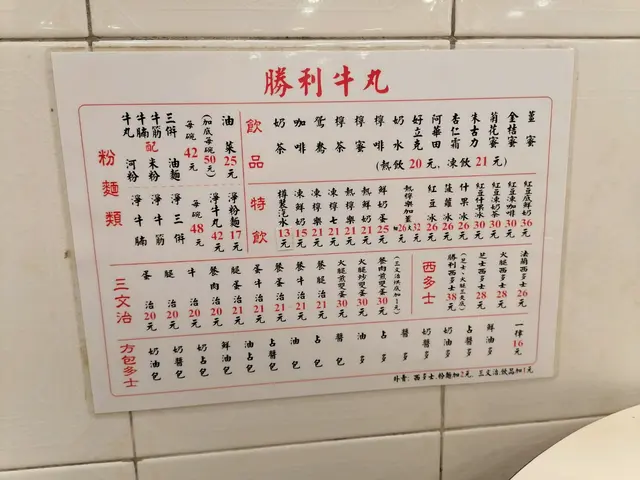 勝利牛丸
粉麵類
牛丸
牛腩
牛筋
三併
配
河粉
米粉
油麵
每碗42元
(加底每碗50元)
油菜25元
淨牛腩
淨牛筋
淨三併
每碗48元
淨牛丸42元
淨粉麵17元
飲品
奶茶
咖啡
鴛鴦
檸茶
檸蜜
檸啡
奶水
好立克
阿華田
杏仁霜
朱古力
菊花蜜
金桔蜜
薑蜜
(熱飲20元，凍飲21元)
特飲
樽裝汽水13元
凍鮮奶15元
凍檸樂21元
凍檸七21元
熱檸樂21元
熱鮮奶21元
鮮奶蛋25元
熱檸樂加薑
紅豆冰26元
菠蘿冰26元
什果冰26元
紅豆什果冰30元
紅豆凍奶茶30元
紅豆凍咖啡30元
紅豆底鮮奶36元
三文治
蛋治20元
腿治20元
牛治20元
餐肉治20元
腿蛋治21元
蛋牛治21元
餐蛋治21元
餐牛治21元
餐腿治21元
火腿煎雙蛋30元
火腿炒雙蛋30元
餐肉煎雙蛋30元
(三文治烘底加1元)
西多士
勝利西多士38元
(芝士、火腿三夾底)
芝士西多士28元
火腿西多士28元
法蘭西多士26元
方包多士
奶油包
奶醬包
奶占包
鮮油包
油占包
占醬包
油包
占包
醬包
油多
占多
醬多
奶醬多
奶油多
占醬多
鮮油多
一律16元
外賣：西多士,粉麵加2元，三文治,飲品加1元